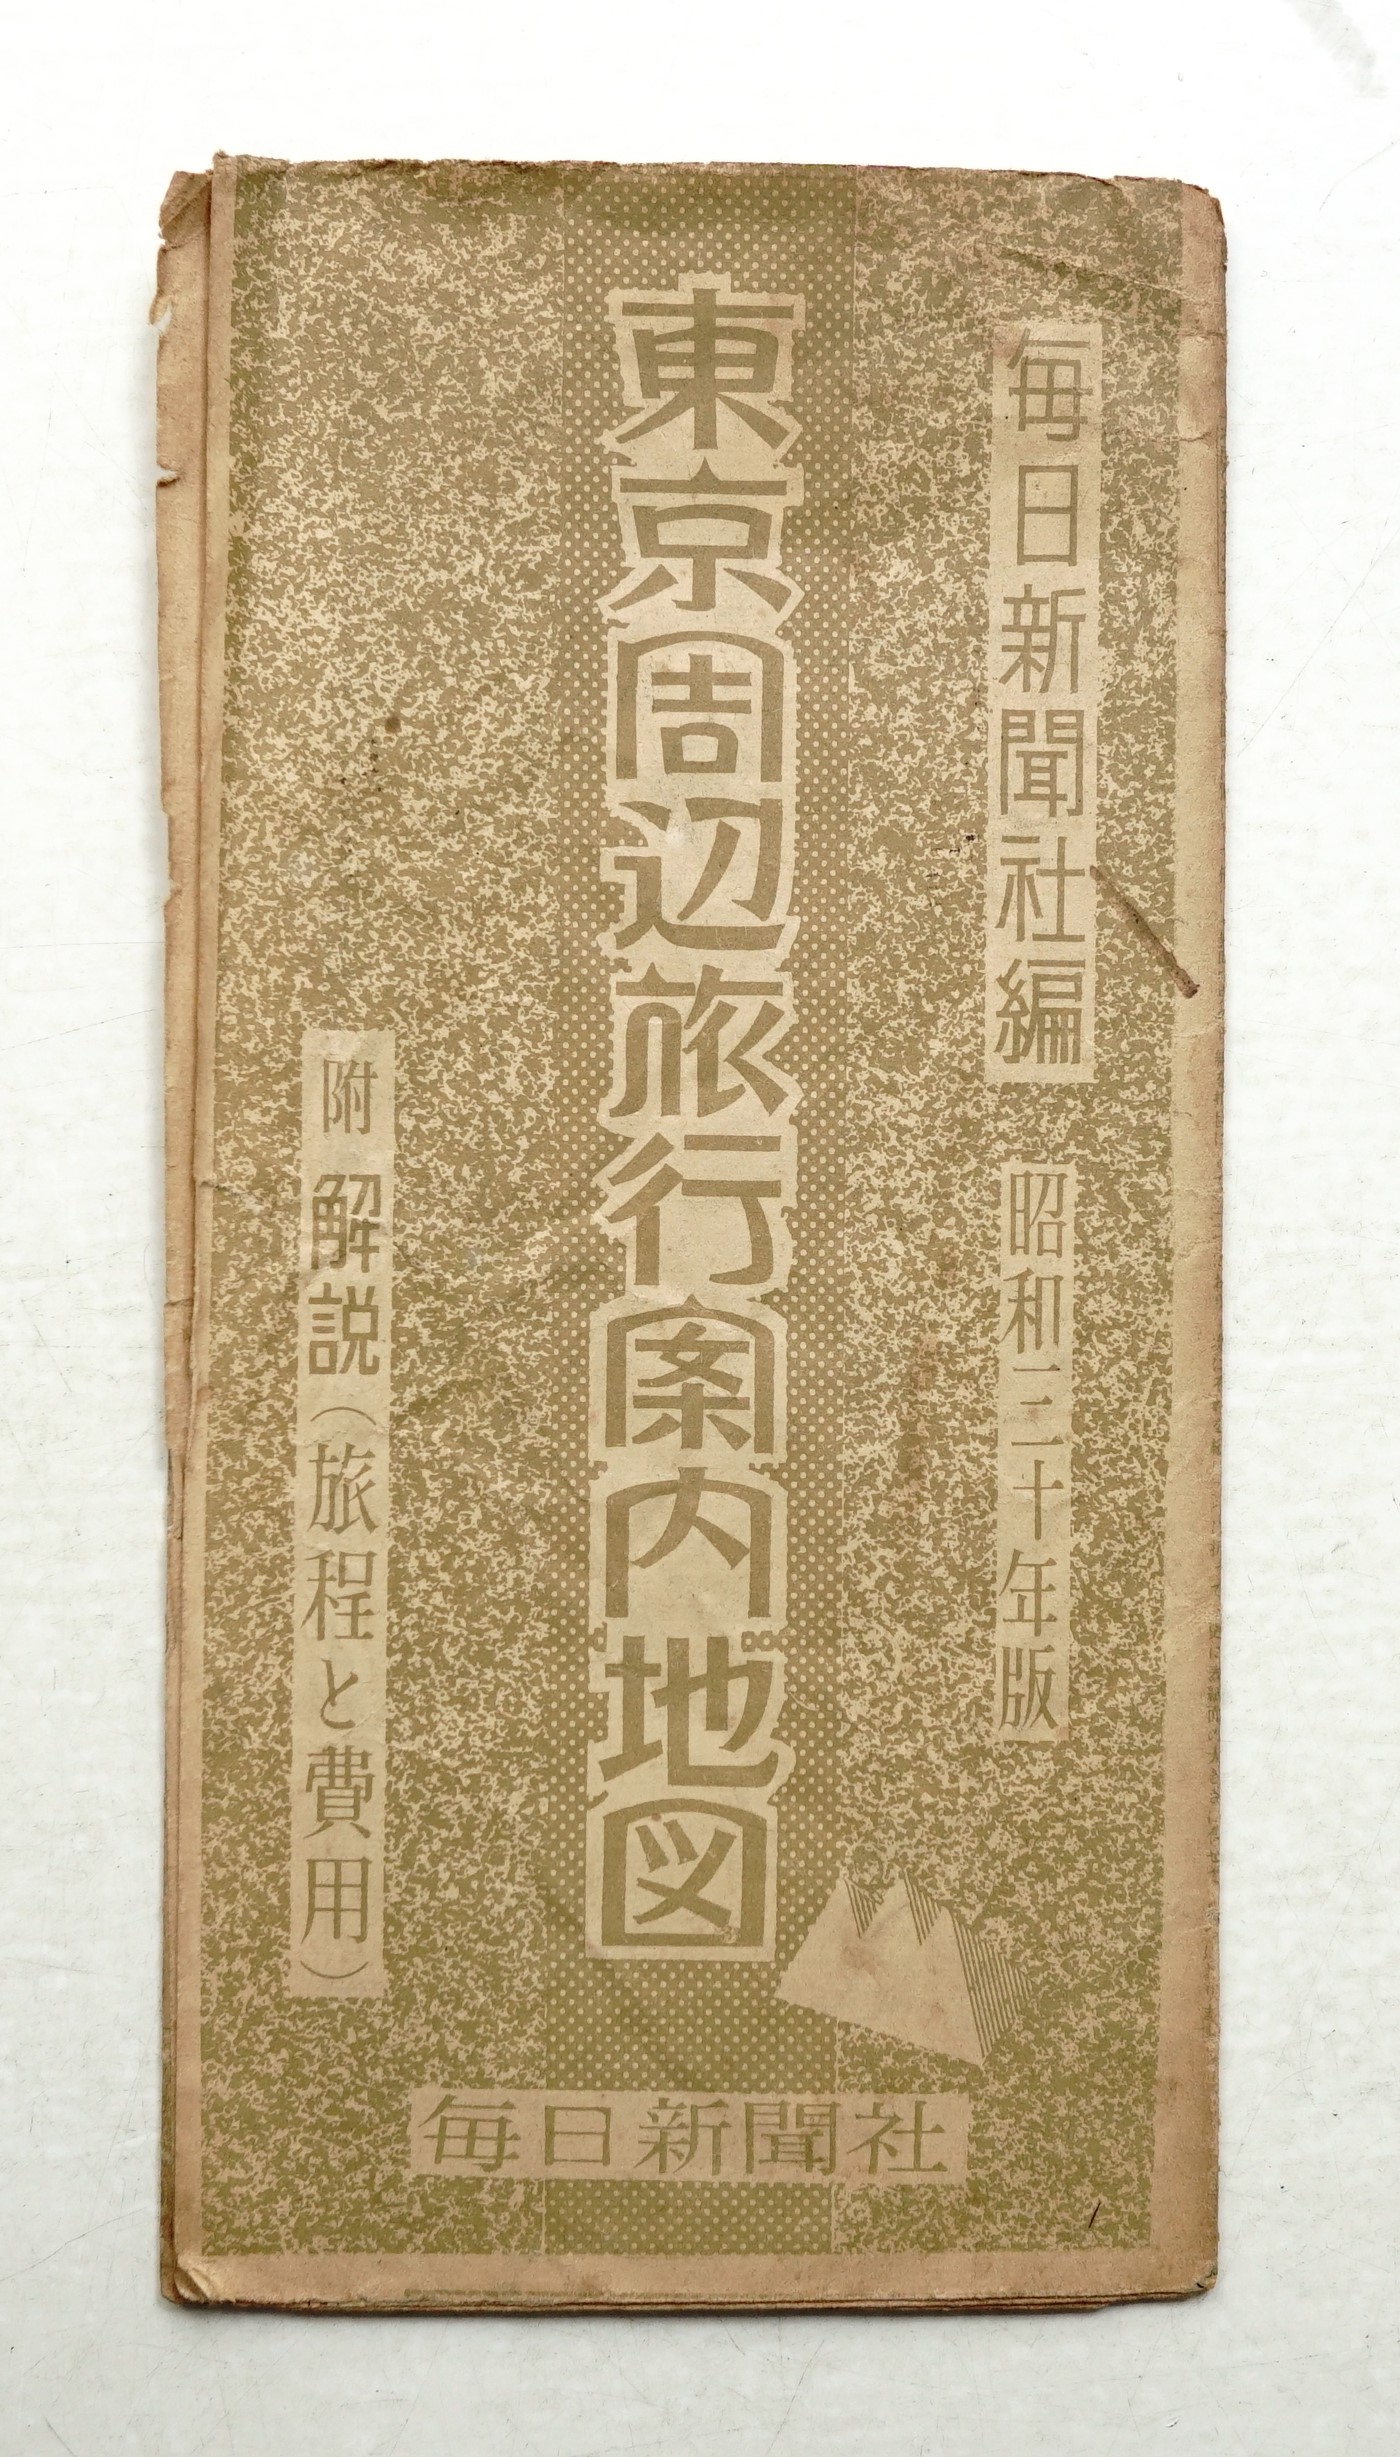 毎日新聞社編 昭和三十年版
東京周辺旅行案内地図
附 解説（旅程と費用）
毎日新聞社